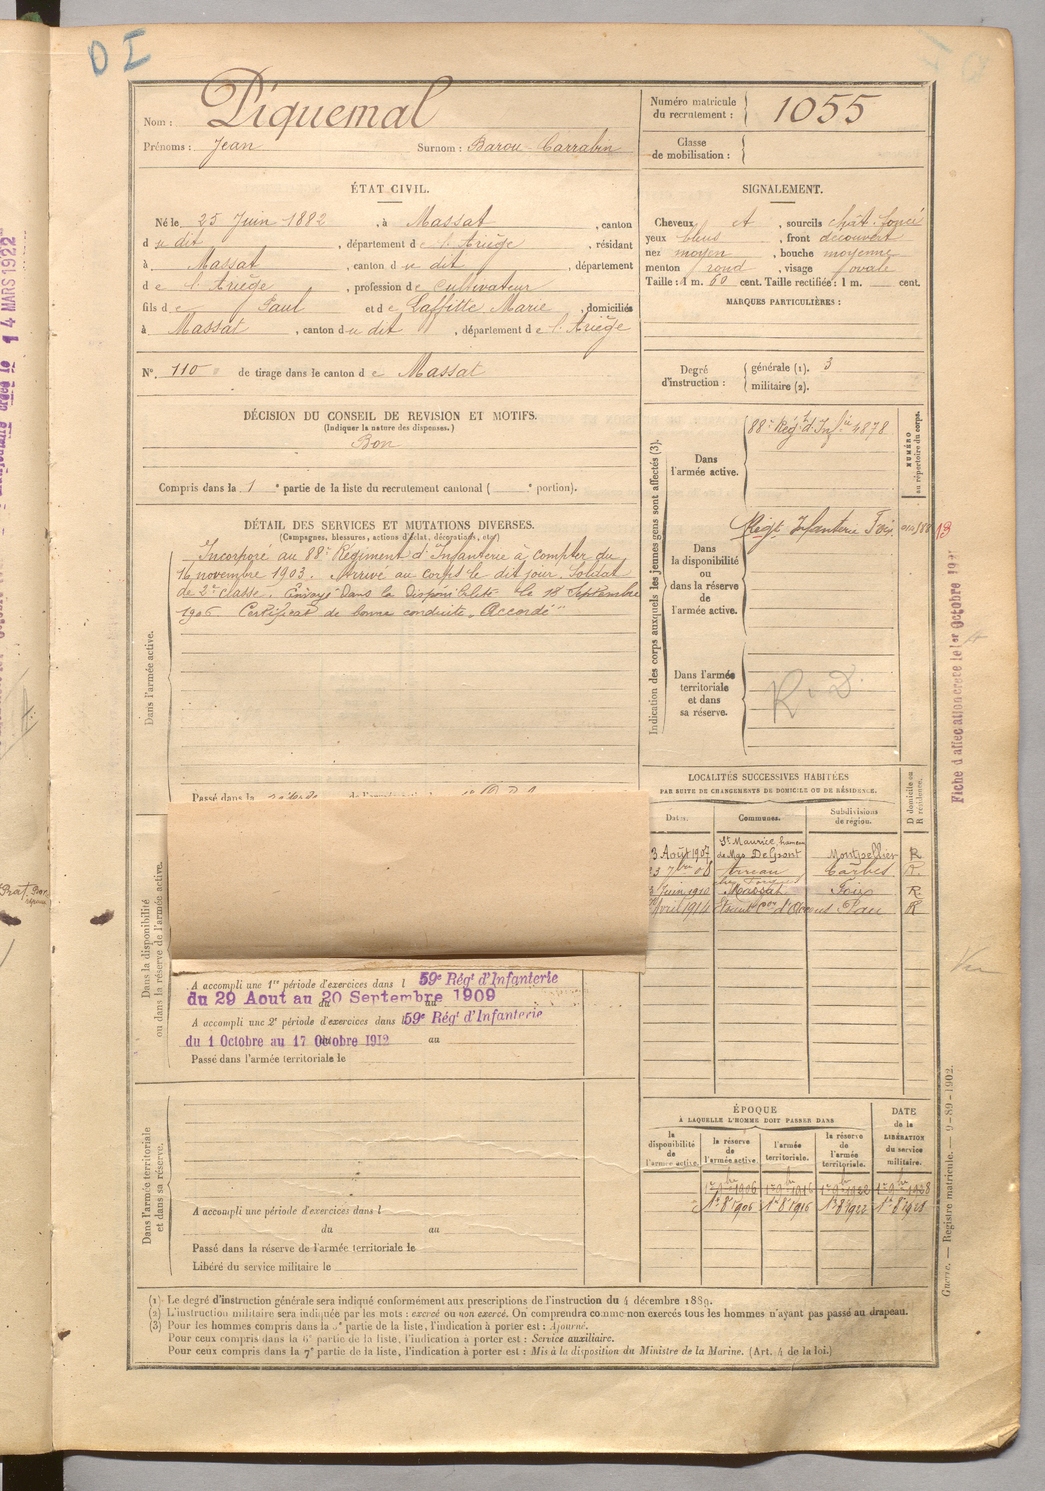 D I
Nom : Piquemal
Prénoms : Jean Surnom : Barou Carrabin
Numéro matricule du recrutement : 1055
Classe de mobilisation :
ÉTAT CIVIL.
Né le 25 Juin 1882, à Massat, canton
d u dit, département d e l'Ariège, résidant
à Massat, canton d u dit, département
d e l'Ariège, profession d e Cultivateur
fils d e Paul et d e Laffitte Marie, domiciliés
à Massat, canton d u dit, département d e l'Ariège
SIGNALEMENT.
Cheveux sourcils chât. foncé
yeux bleus, front découvert
nez moyen, bouche moyenne
menton rond, visage ovale
Taille : 1 m. 60 cent. Taille rectifiée : 1 m. cent.
MARQUES PARTICULIÈRES :
N°. 110 de tirage dans le canton d e Massat
Degré d'instruction : générale (1). 3
militaire (2).
DÉCISION DU CONSEIL DE REVISION ET MOTIFS.
(Indiquer la nature des dispenses.)
Bon
Compris dans la 1e partie de la liste du recrutement cantonal ( e portion).
DÉTAIL DES SERVICES ET MUTATIONS DIVERSES.
(Campagnes, blessures, actions d'éclat, décorations, etc.)
Dans l'armée active.
Incorporé au 88e Régiment d'Infanterie à compter du
16 novembre 1903. Arrivé au corps le dit jour. Soldat
de 2e classe. Envoyé dans la disponibilité le 18 Septembre
1906 Certificat de bonne conduite "Accordé"
Passé dans la
Indication des corps auxquels les jeunes gens sont affectés (3).
NUMÉRO au répertoire du corps.
Dans l'armée active.
88e Régt d'Infie 4878
Dans la disponibilité ou dans la réserve de l'armée active.
Régt Infanterie Foix
Dans l'armée territoriale et dans sa réserve.
R. D.
LOCALITÉS SUCCESSIVES HABITÉES
PAR SUITE DE CHANGEMENTS DE DOMICILE OU DE RÉSIDENCE.
Dates. Communes. Subdivisions de région. D domicile ou R résidence.
3 Août 1907 St Maurice, hameau de Mas Delpont Montpellier R
Arreau Tarbes R.
Juin 1910 Massat Foix R.
Avril 1914 Pau R
Dans la disponibilité ou dans la réserve de l'armée active.
A accompli une 1re période d'exercices dans l 59e Régt d'Infanterie
du 29 Aout au 20 Septembre 1909
A accompli une 2e période d'exercices dans l 59e Régt d'Infanterie
du 1 Octobre au 17 Octobre 1912 au
Passé dans l'armée territoriale le
Dans l'armée territoriale et dans sa réserve.
A accompli une période d'exercices dans l
du au
Passé dans la réserve de l'armée territoriale le
Libéré du service militaire le
ÉPOQUE
À LAQUELLE L'HOMME DOIT PASSER DANS
la disponibilité de l'armée active. la réserve de l'armée active l'armée territoriale. la réserve de l'armée territoriale.
DATE de la LIBÉRATION du service militaire.
1er 9bre 1906 1er 9bre 1916 1er 9bre 1922 1er 9bre 1928
1er 8bre 1906 1er 8bre 1916 1er 8bre 1922 1er 8bre 1928
(1) Le degré d'instruction générale sera indiqué conformément aux prescriptions de l'instruction du 4 décembre 1889.
(2) L'instruction militaire sera indiquée par les mots : exercé ou non exercé. On comprendra comme non exercés tous les hommes n'ayant pas passé au drapeau.
(3) Pour les hommes compris dans la 5e partie de la liste, l'indication à porter est : Ajourné.
Pour ceux compris dans la 6e partie de la liste, l'indication à porter est : Service auxiliaire.
Pour ceux compris dans la 7e partie de la liste, l'indication à porter est : Mis à la disposition du Ministre de la Marine. (Art. 4 de la loi.)
Fiche d'affectation créée le 1er Octobre
Guerre. — Registre matricule. — 9-89-1902.
14 MARS 1922